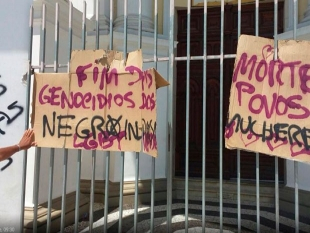 FIM DOS
GENOCÍDIOS DOS
NEGROS
LGBT
MORTE
POVOS
MULHERE